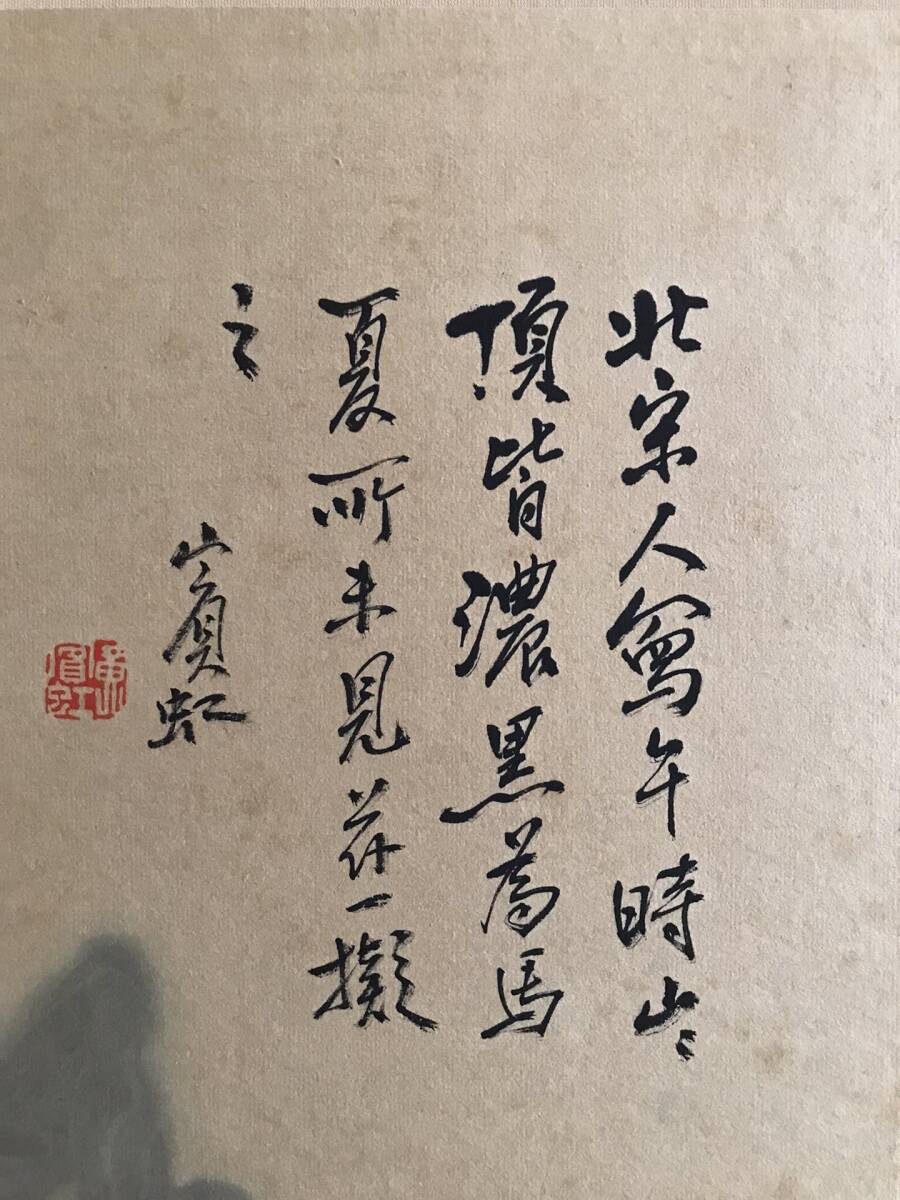 北宋人寫午時山〻
頂皆濃黑為馬
夏所未見茲一擬
之
賓虹
黃賓虹